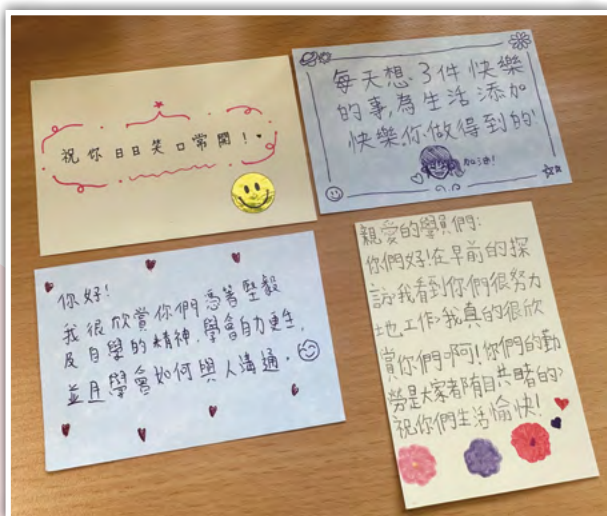 祝你日日笑口常開！
每天想3件快樂
的事,為生活添加
快樂,你做得到的!
加油!
你好!
我很欣賞你們憑著堅毅
及自學的精神,學會自力更生,
並且學會如何與人溝通。
親愛的學員們:
你們好!在早前的探
訪,我看到你們很努力
地工作,我真的很欣
賞你們啊!你們的勤
勞是大家都有目共睹的,
祝你們生活愉快!